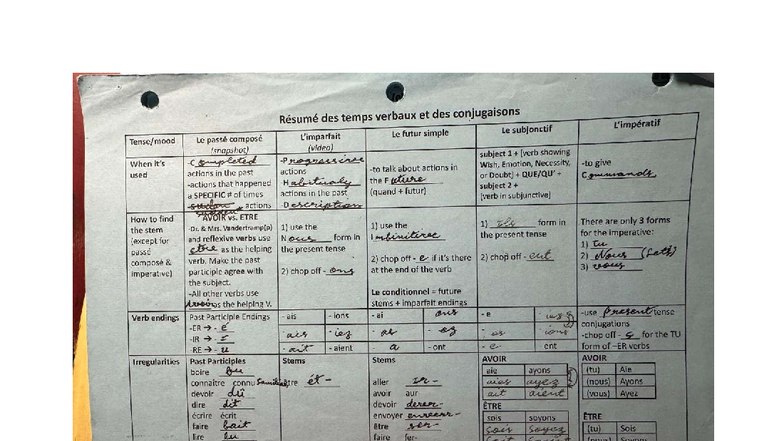 Résumé des temps verbaux et des conjugaisons
Tense/mood
Le passé composé
(snapshot)
L'imparfait
(video)
Le futur simple
Le subjonctif
L'impératif
When it's
used
-Completed
actions in the past
-actions that happened
a SPECIFIC # of times
-sudden actions
-Progressive
actions
Habitually
actions in the past
-Description
-to talk about actions in
the Future
(quand + futur)
subject 1 + (verb showing
Wish, Emotion, Necessity,
or Doubt) + QUE/QU' +
subject 2 +
(verb in subjunctive)
-to give
Commands
How to find
the stem
(except for
passé
composé &
impérative)
AVOIR vs. ETRE
-Dr. & Mrs. Vandertramp(p)
and reflexive verbs use
être as the helping
verb. Make the past
participle agree with
the subject.
-All other verbs use
avoir as the helping V.
1) use the
Nous form in
the present tense
2) chop off - ons
1) use the
Infinitive
2) chop off - e if it's there
at the end of the verb
Le conditionnel = future
stems + imparfait endings
1) ils form in
the present tense
2) chop off - ent
There are only 3 forms
for the imperative:
1) tu
2) Nous (Lets)
3) vous
Verb endings
Past Participle Endings
-ER → - é
-IR → - i
-RE → - u
- ais
- ions
ais
- iez
- ait
- aient
- ai
ons
- as
- ez
- a
- ont
- e
- es
- e
- ent
-use present tense
conjugations
-chop off - s for the TU
form of –ER verbs
Irregularities
Past Participles
boire bu
connaître connu
devoir dû
dire dit
écrire écrit
faire fait
lire lu
Stems
être ét -
Stems
aller ir-
avoir aur
devoir devr-
envoyer enverr-
être ser-
faire fer-
AVOIR
aie ayons
aies ayez
ait aient
ÊTRE
sois soyons
sois soyez
AVOIR
(tu) Aie
(nous) Ayons
(vous) Ayez
ÊTRE
(tu) Sois
(nous) Soyons